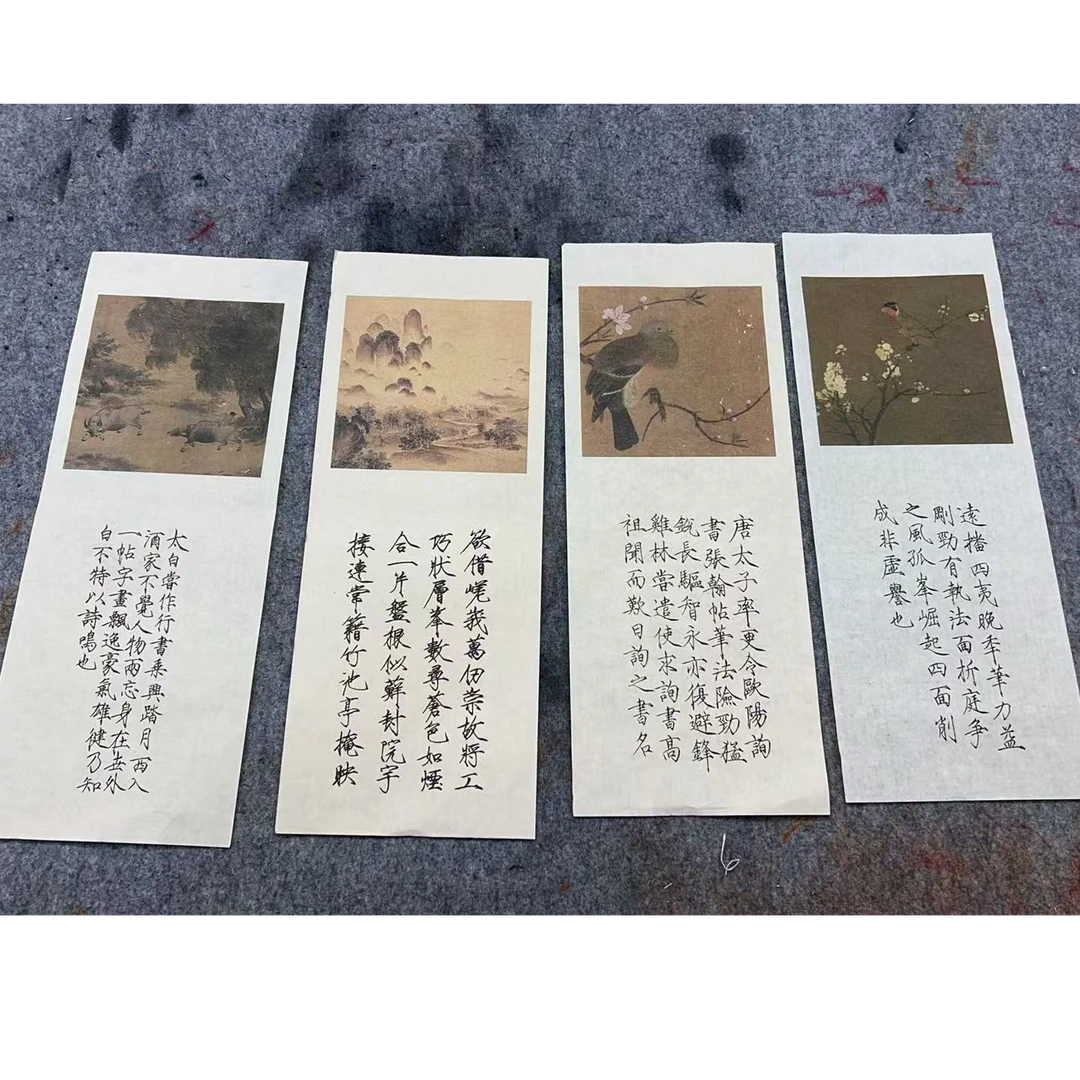 太白嘗作行書乘興踏月西入
酒家不覺人物兩忘身在世外
一帖字畫飄逸豪氣雄健乃知
白不特以詩鳴也
欲借嵯峩萬仞崇故將工
巧狀層峯數尋蒼色如煙
合一片盤根似蘚封院宇
接連常籍竹池亭掩映
唐太子率更令歐陽詢
書張翰帖筆法險勁猛
銳長驅智永亦復避鋒
雞林嘗遣使求詢書高
祖聞而歎曰詢之書名
遠播四夷晚年筆力益
剛勁有執法面折庭爭
之風孤峯崛起四面削
成非虛譽也